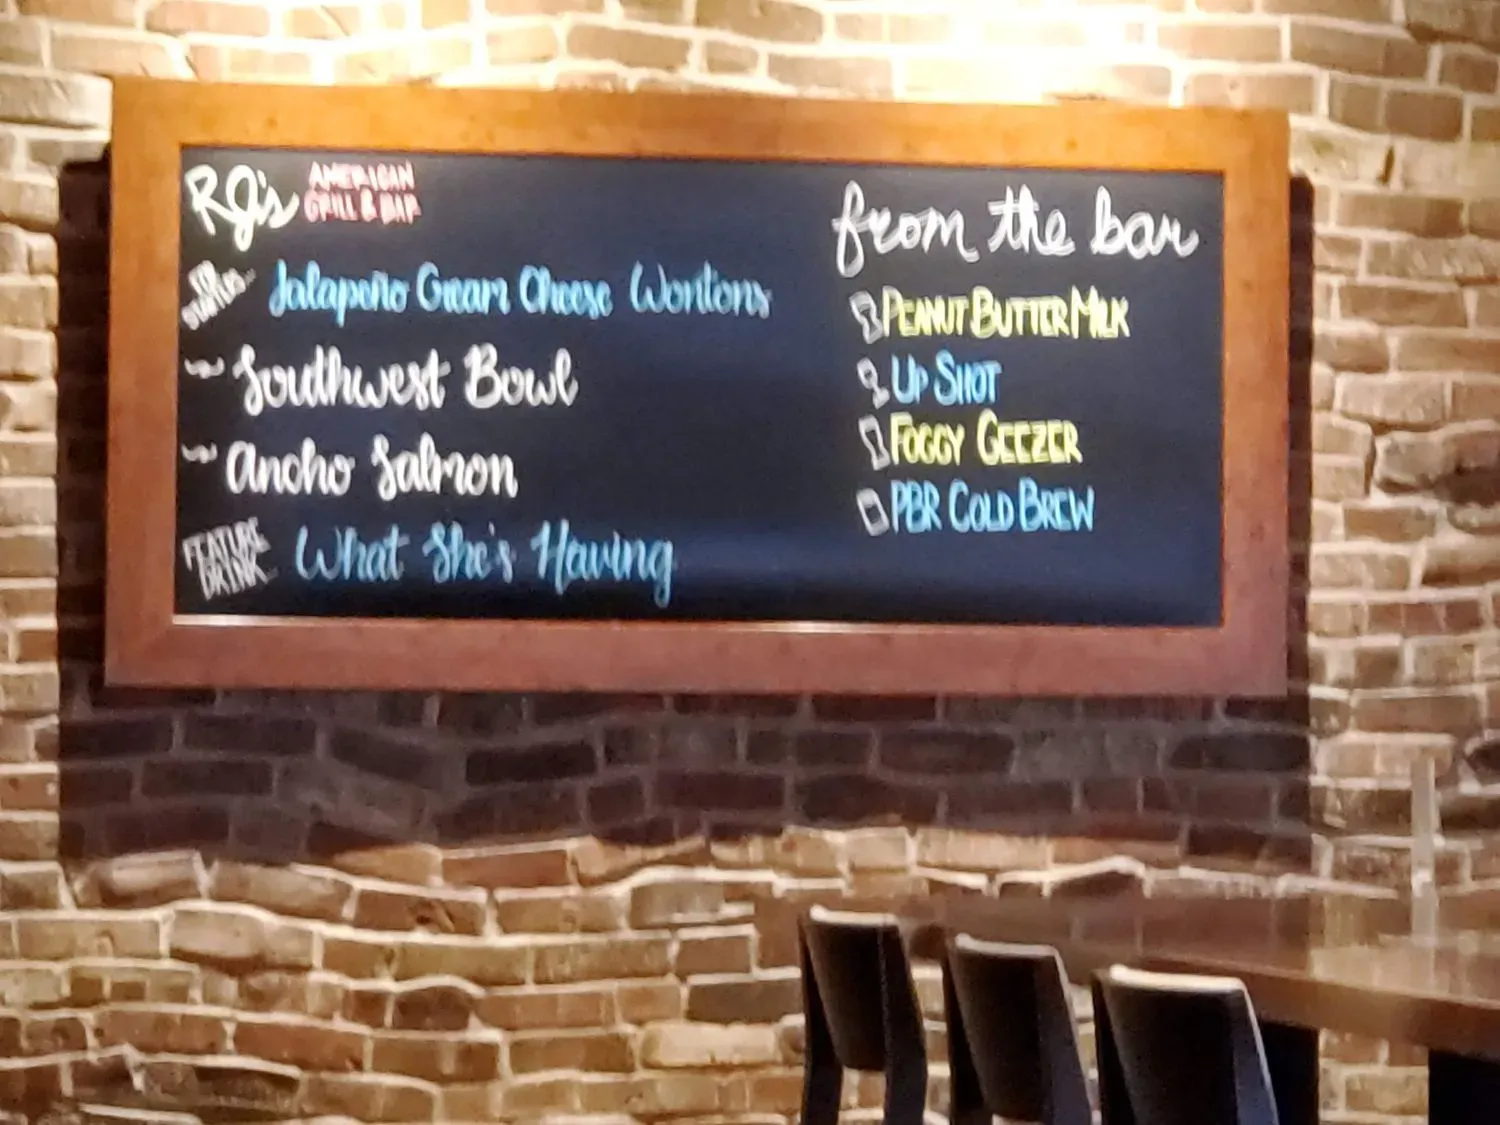 RJ's AMERICAN GRILL & BAR
TO STARTERS... Jalapeño Cream Cheese Wontons
~ Southwest Bowl
~ Ancho Salmon
FEATURE DRINK... What She's Having
from the bar
PEANUT BUTTER MILK
UP SHOT
FOGGY GEEZER
PBR COLD BREW